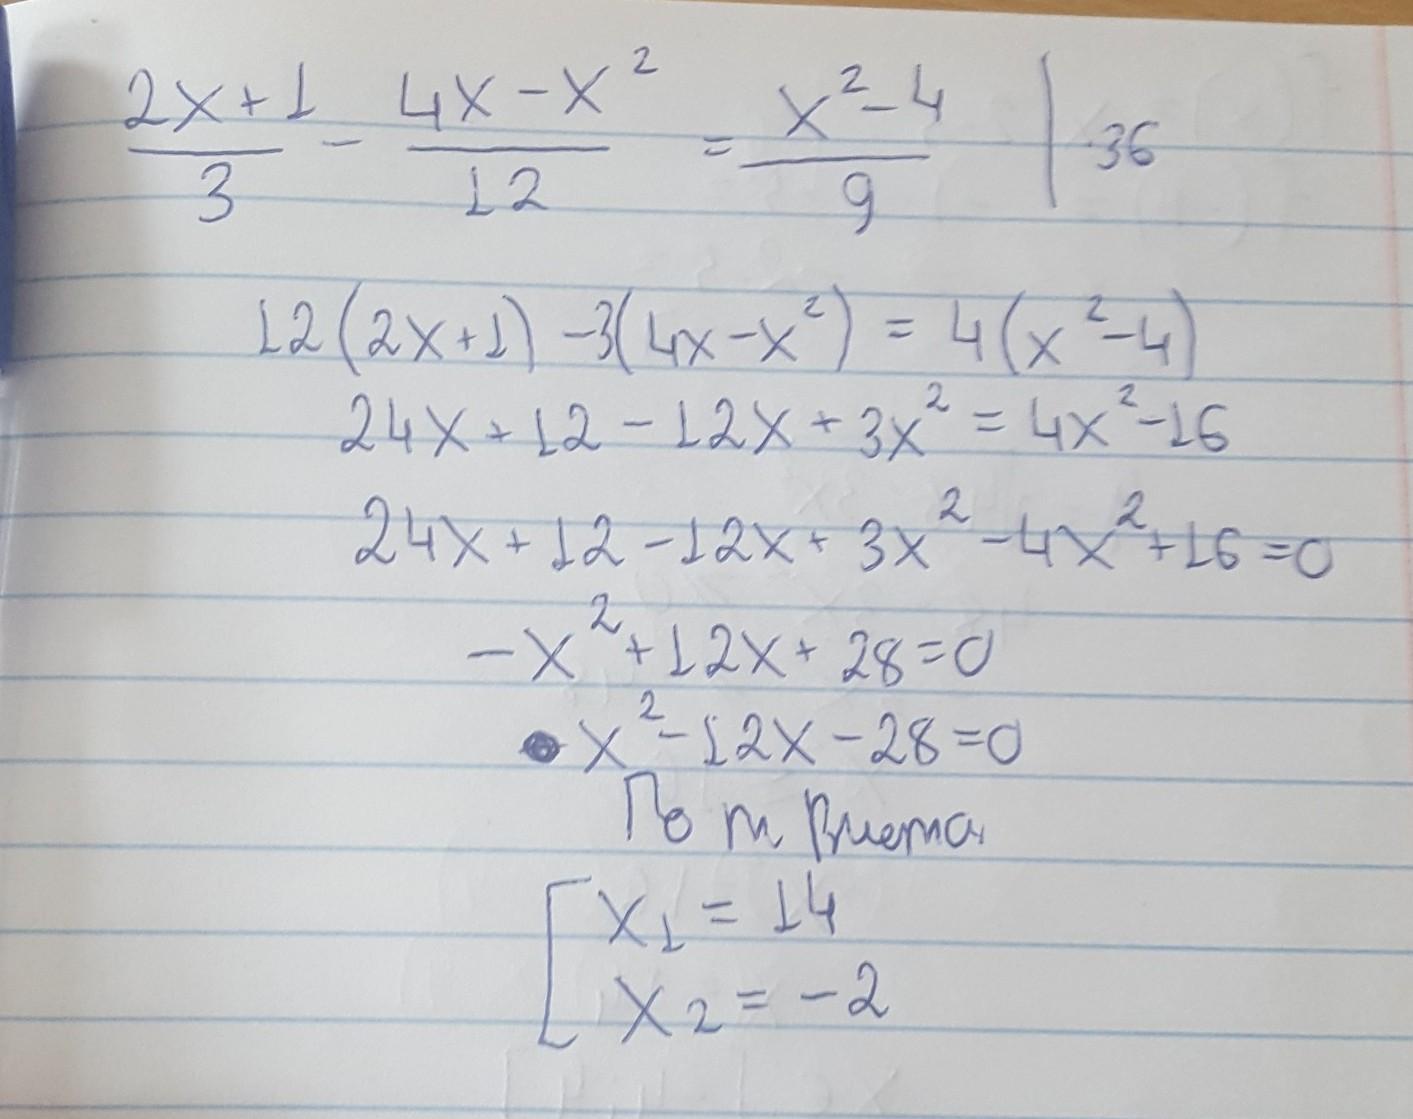 (2x+1)/3 - (4x-x²)/12 = (x²-4)/9 | ·36
12(2x+1) -3(4x-x²) = 4(x²-4)
24x+12-12x+3x²=4x²-16
24x+12-12x+3x²-4x²+16=0
-x²+12x+28=0
x²-12x-28=0
По т Виета
[x₁=14
x₂=-2